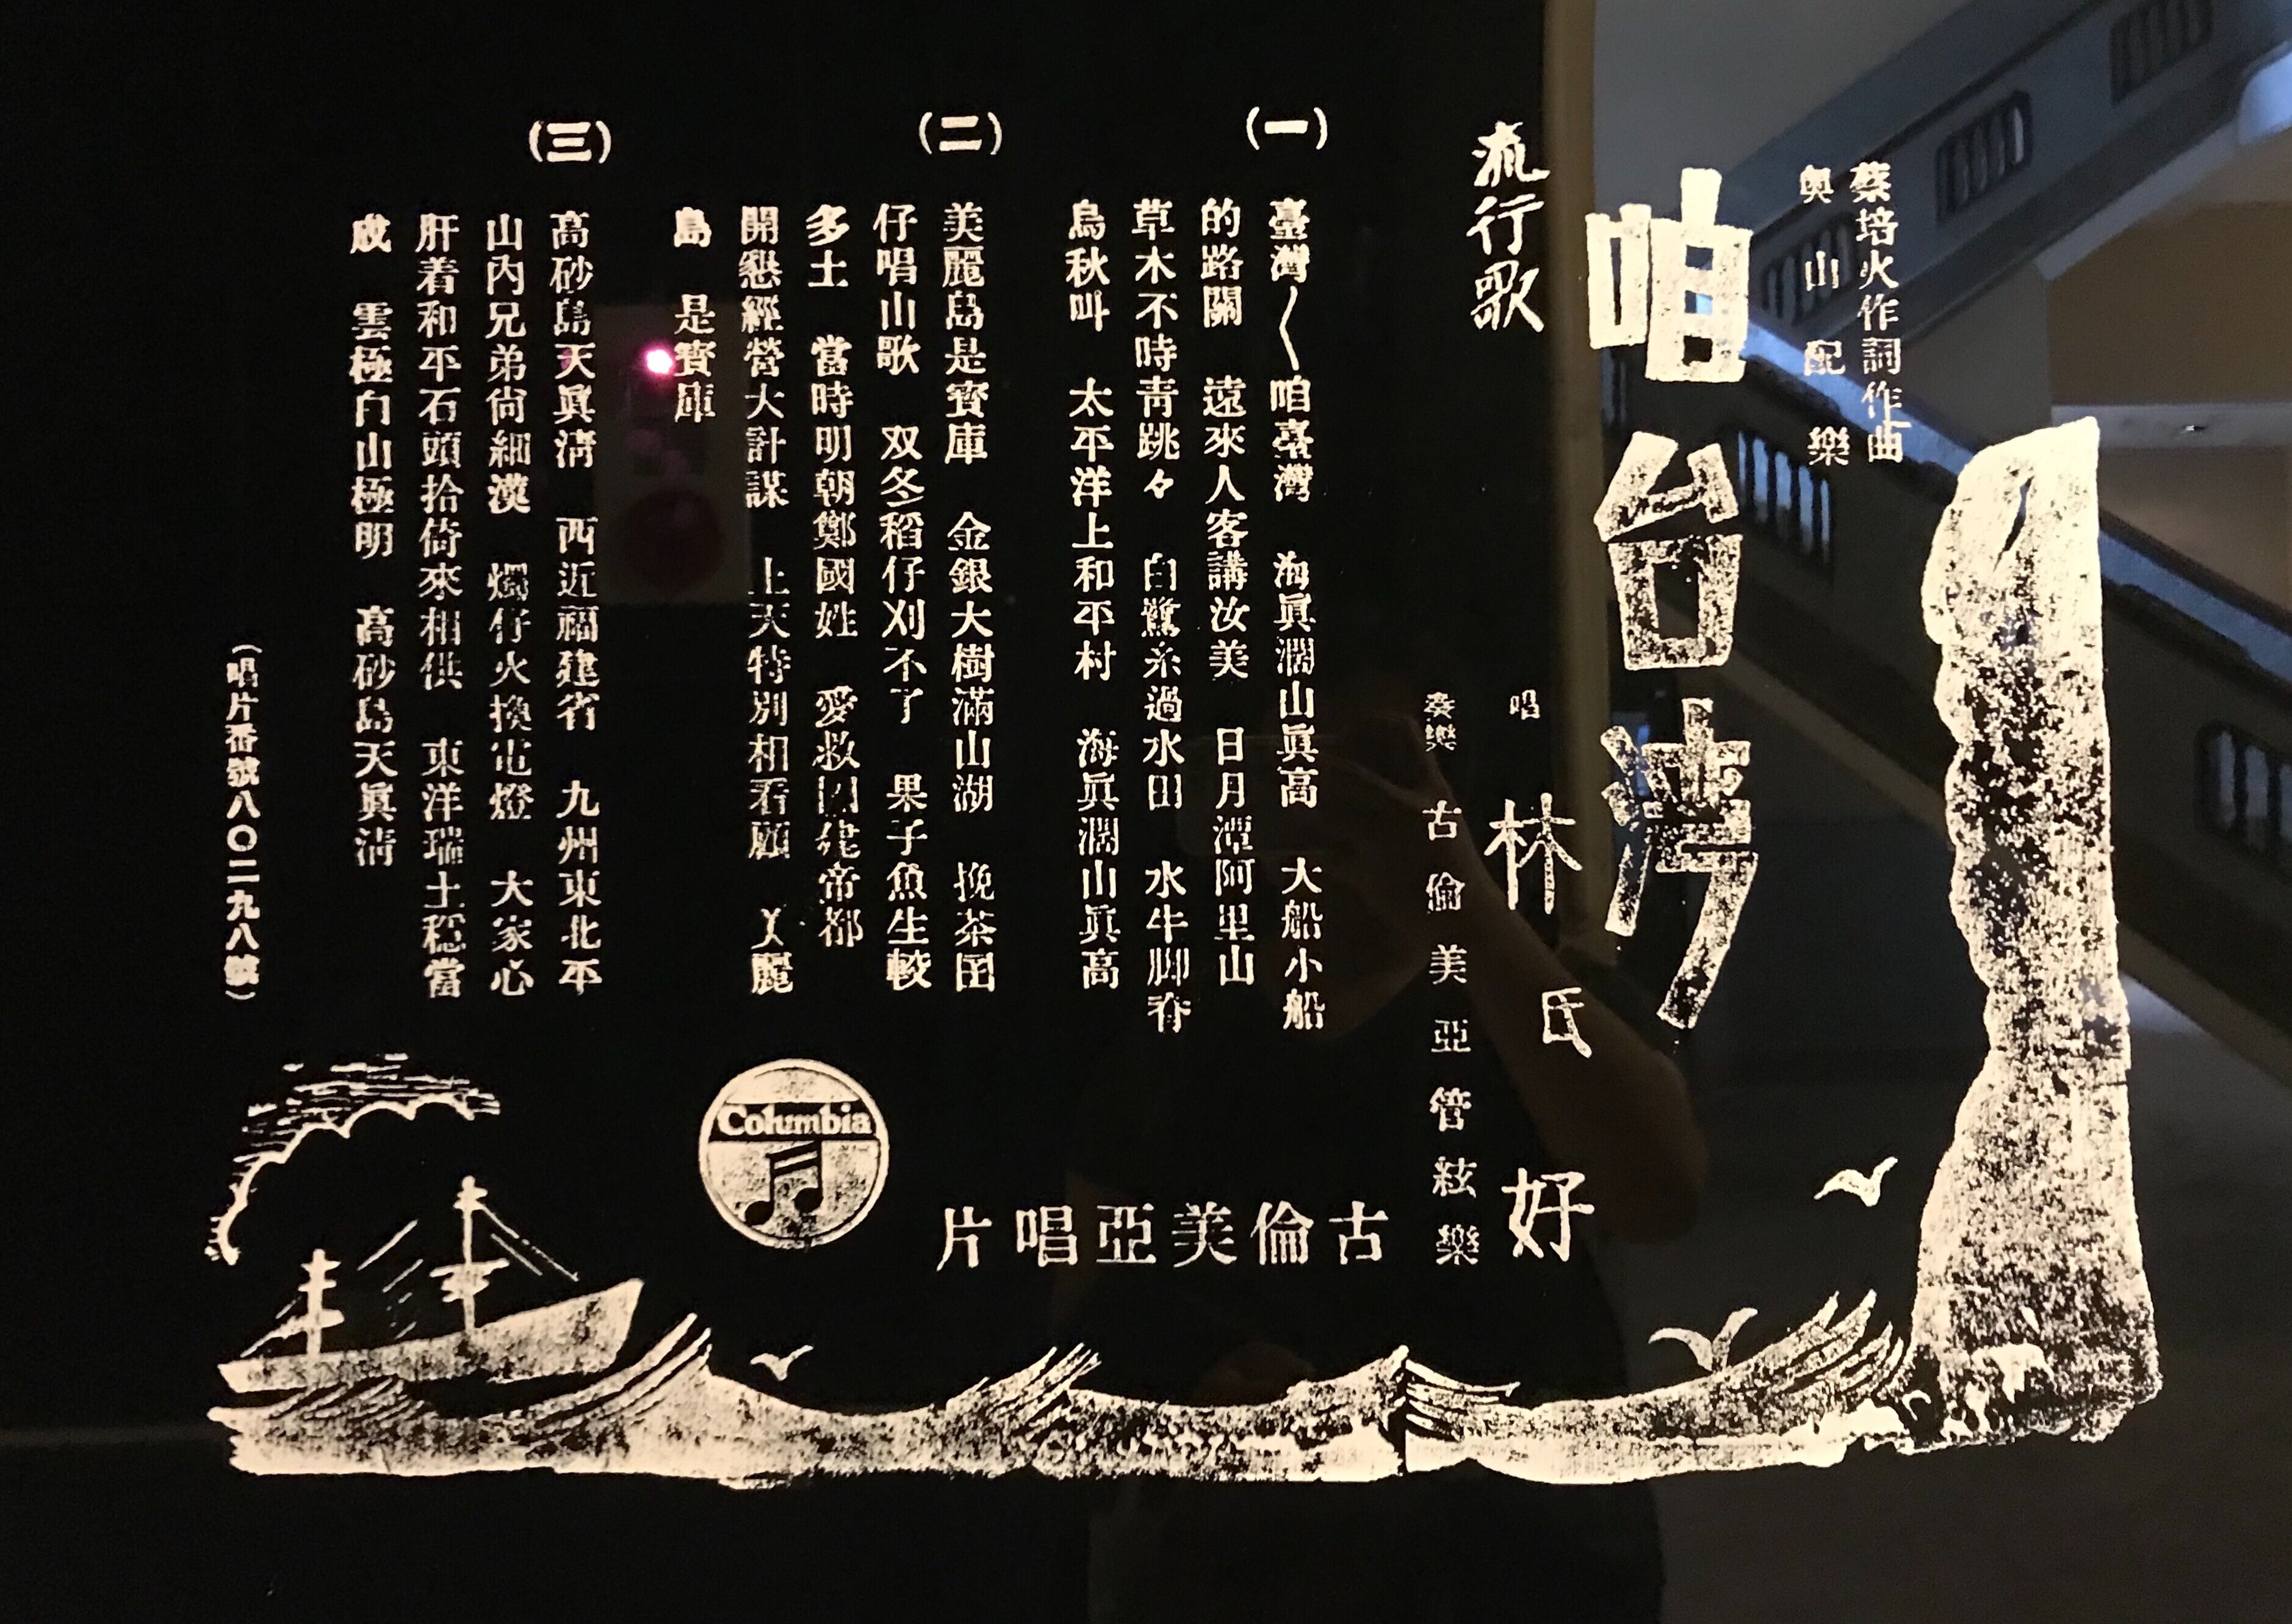 蔡培火作詞作曲
奥山配樂
咱台湾
流行歌
唱 林氏好
奏樂 古倫美亞管絃樂
(一)
臺灣〱咱臺灣 海眞濶山眞高 大船小船
的路關 遠來人客講汝美 日月潭阿里山
草木不時靑跳々 白鷺糸過水田 水牛脚脊
烏秋叫 太平洋上和平村 海眞濶山眞高
(二)
美麗島是寶庫 金銀大樹滿山湖 挽茶囝
仔唱山歌 双冬稻仔刈不了 果子魚生較
多土 當時明朝鄭國姓 愛救國建帝都
開懇經營大計謀 上天特別相看顧 美麗
島 是寶庫
(三)
高砂島天眞淸 西近福建省 九州東北平
山內兄弟尙細漢 燭仔火換電燈 大家心
肝着和平石頭拾倚來相供 東洋瑞土穩當
成 雲極白山極明 高砂島天眞淸
(唱片番號八〇二九八號)
Columbia
古倫美亞唱片